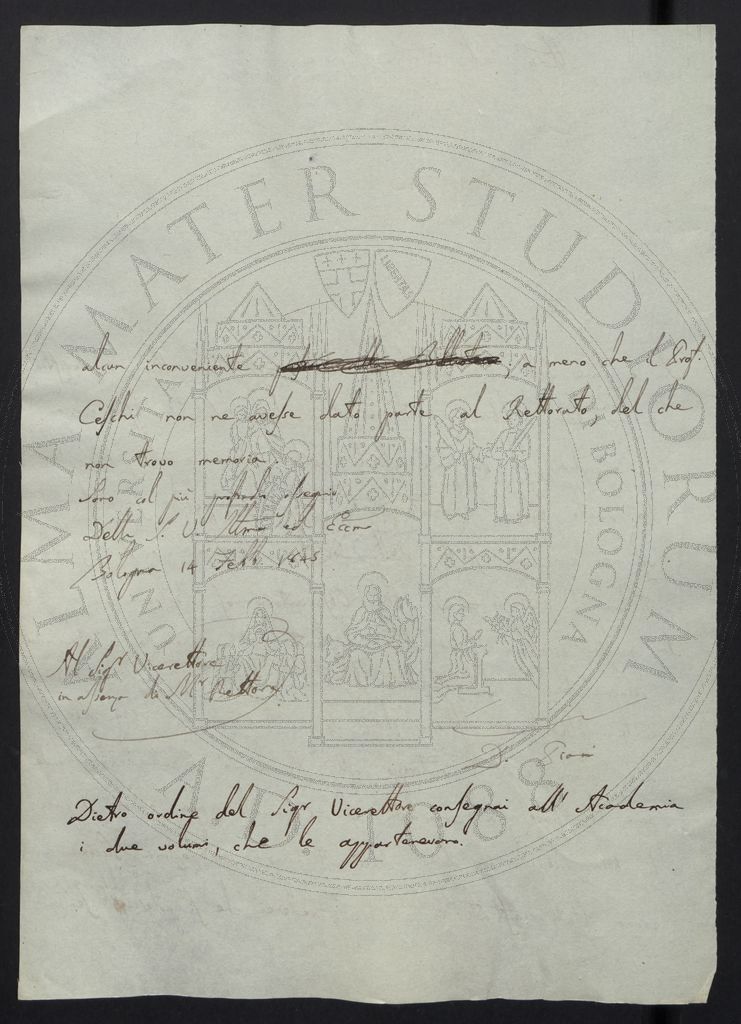 alcun inconveniente , a meno che il Prof.
Ceschi non ne avesse dato parte al Rettorato, del che
non trovo memoria.
Sono col più profondo ossequio
Della S. V. Illma ed Eccma
Bologna 14 Febb. 1845
Al Sigr Vicerettore
in assenza di Mr Rettore
D. Piani
Dietro ordine del Sigr Vicerettore consegnai all' Academia
i due volumi, che le appartenevano.
ALMA MATER STUDIORUM
UNIVERSITÀ DI BOLOGNA
A.D. 1088
LIBERTAS